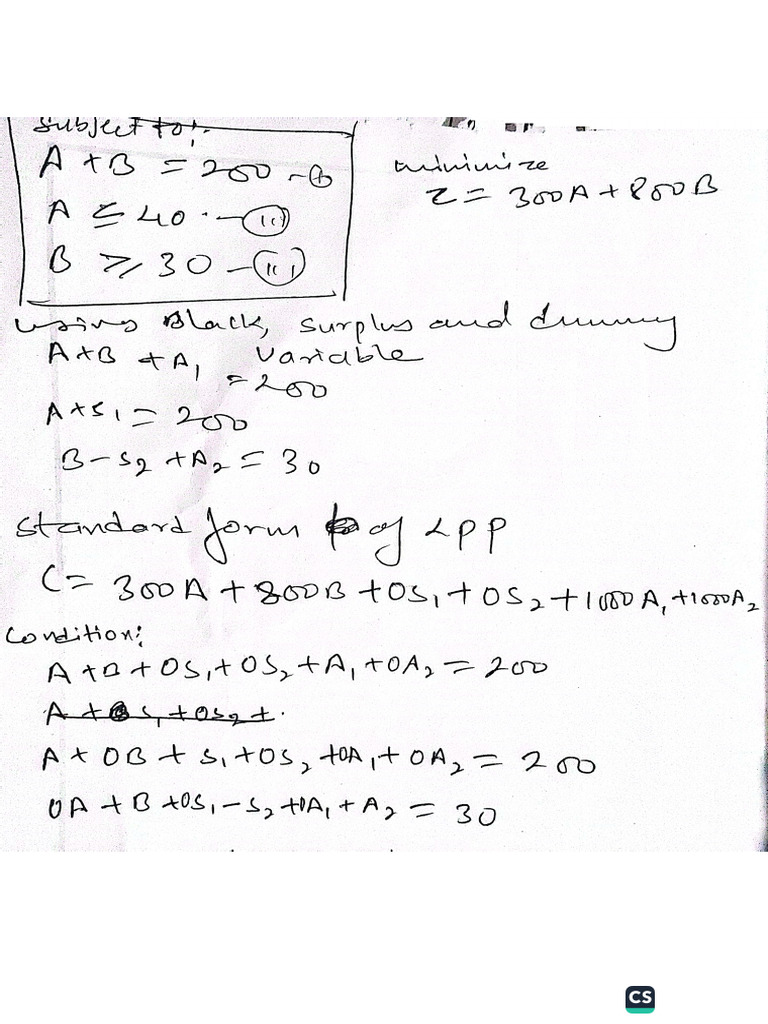 Subject to:
A + B = 200 - (i)
minimize
A ≤ 40. - (ii)
Z = 300A + 800B
B ≥ 30 - (iii)
using Slack, surplus and dummy
variable
A+B + A₁ = 200
A+S₁ = 200
B - S₂ + A₂ = 30
Standard form of LPP
C = 300A + 800B + 0S₁ + 0S₂ + 1000A₁ + 1000A₂
Condition:
A + B + 0S₁ + 0S₂ + A₁ + 0A₂ = 200
A + S₁ + 0S₂ + .
A + 0B + S₁ + 0S₂ + 0A₁ + 0A₂ = 200
0A + B + 0S₁ - S₂ + 0A₁ + A₂ = 30
CS